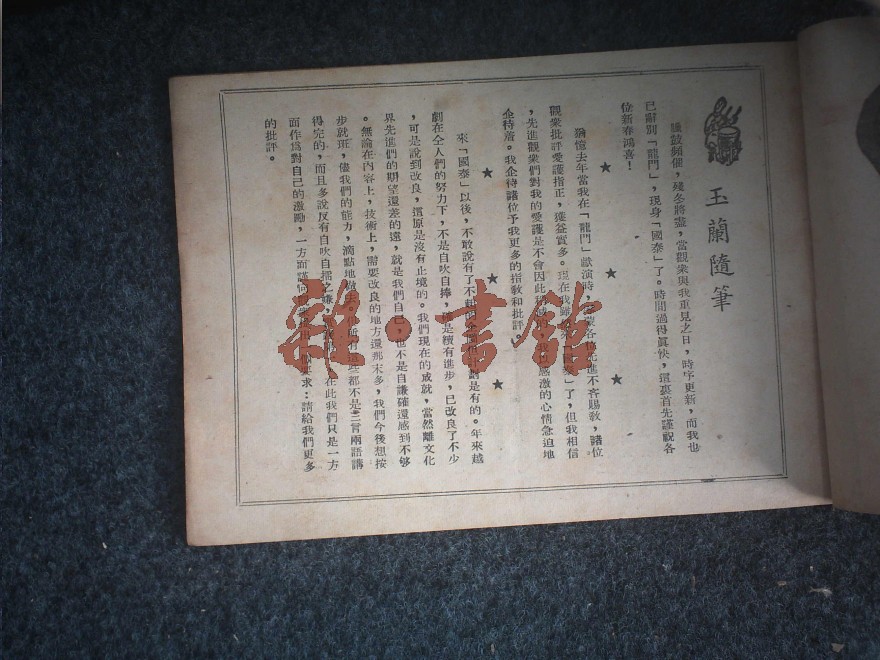 玉蘭隨筆
臘鼓頻催，殘冬將盡，當觀衆與我重見之日，時序更新，而我也
已辭別「龍門」，現身「國泰」了。時間過得眞快，這裏首先謹祝各
位新春鴻喜！
★ ★ ★
猶憶去年當我在「龍門」獻演時，蒙各先進不吝賜敎，諸位
觀衆批評愛護指正，獲益實多。現在我了，但我相信
，先進觀衆們對我的愛護是不會因此感激的心情急迫地
企待着。我企待諸位予我更多的指敎和批評。
★ ★ ★
來「國泰」以後，不敢說有了不是有的。年來越
劇在仝人們的努力下，不是自吹自捧，是續有進步，已改良了不少
，可是說到改良，這原是沒有止境的。我們現在的成就，當然離文化
界先進們的期望還差的遠，就是我們自己，也不是自謙確還感到不够
。無論在內容上，技術上，需要改良的地方還那末多，我們今後想按
步就班，儘我們的能力，滴點地做去，些都不是三言兩語講
得完的，而且多說反有自吹自擂之嫌，在此我們只是一方
面作爲對自己的激勵，一方面謹向要求：請給我們更多
的批評。
雜·書館